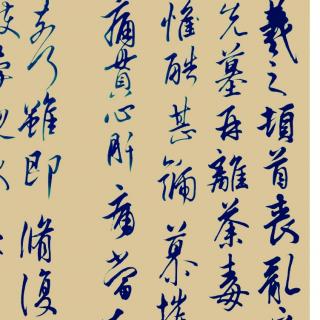 羲之頓首喪亂
先墓再離荼毒
惟酷甚號慕摧
痛貫心肝痛當
奈何雖即脩復